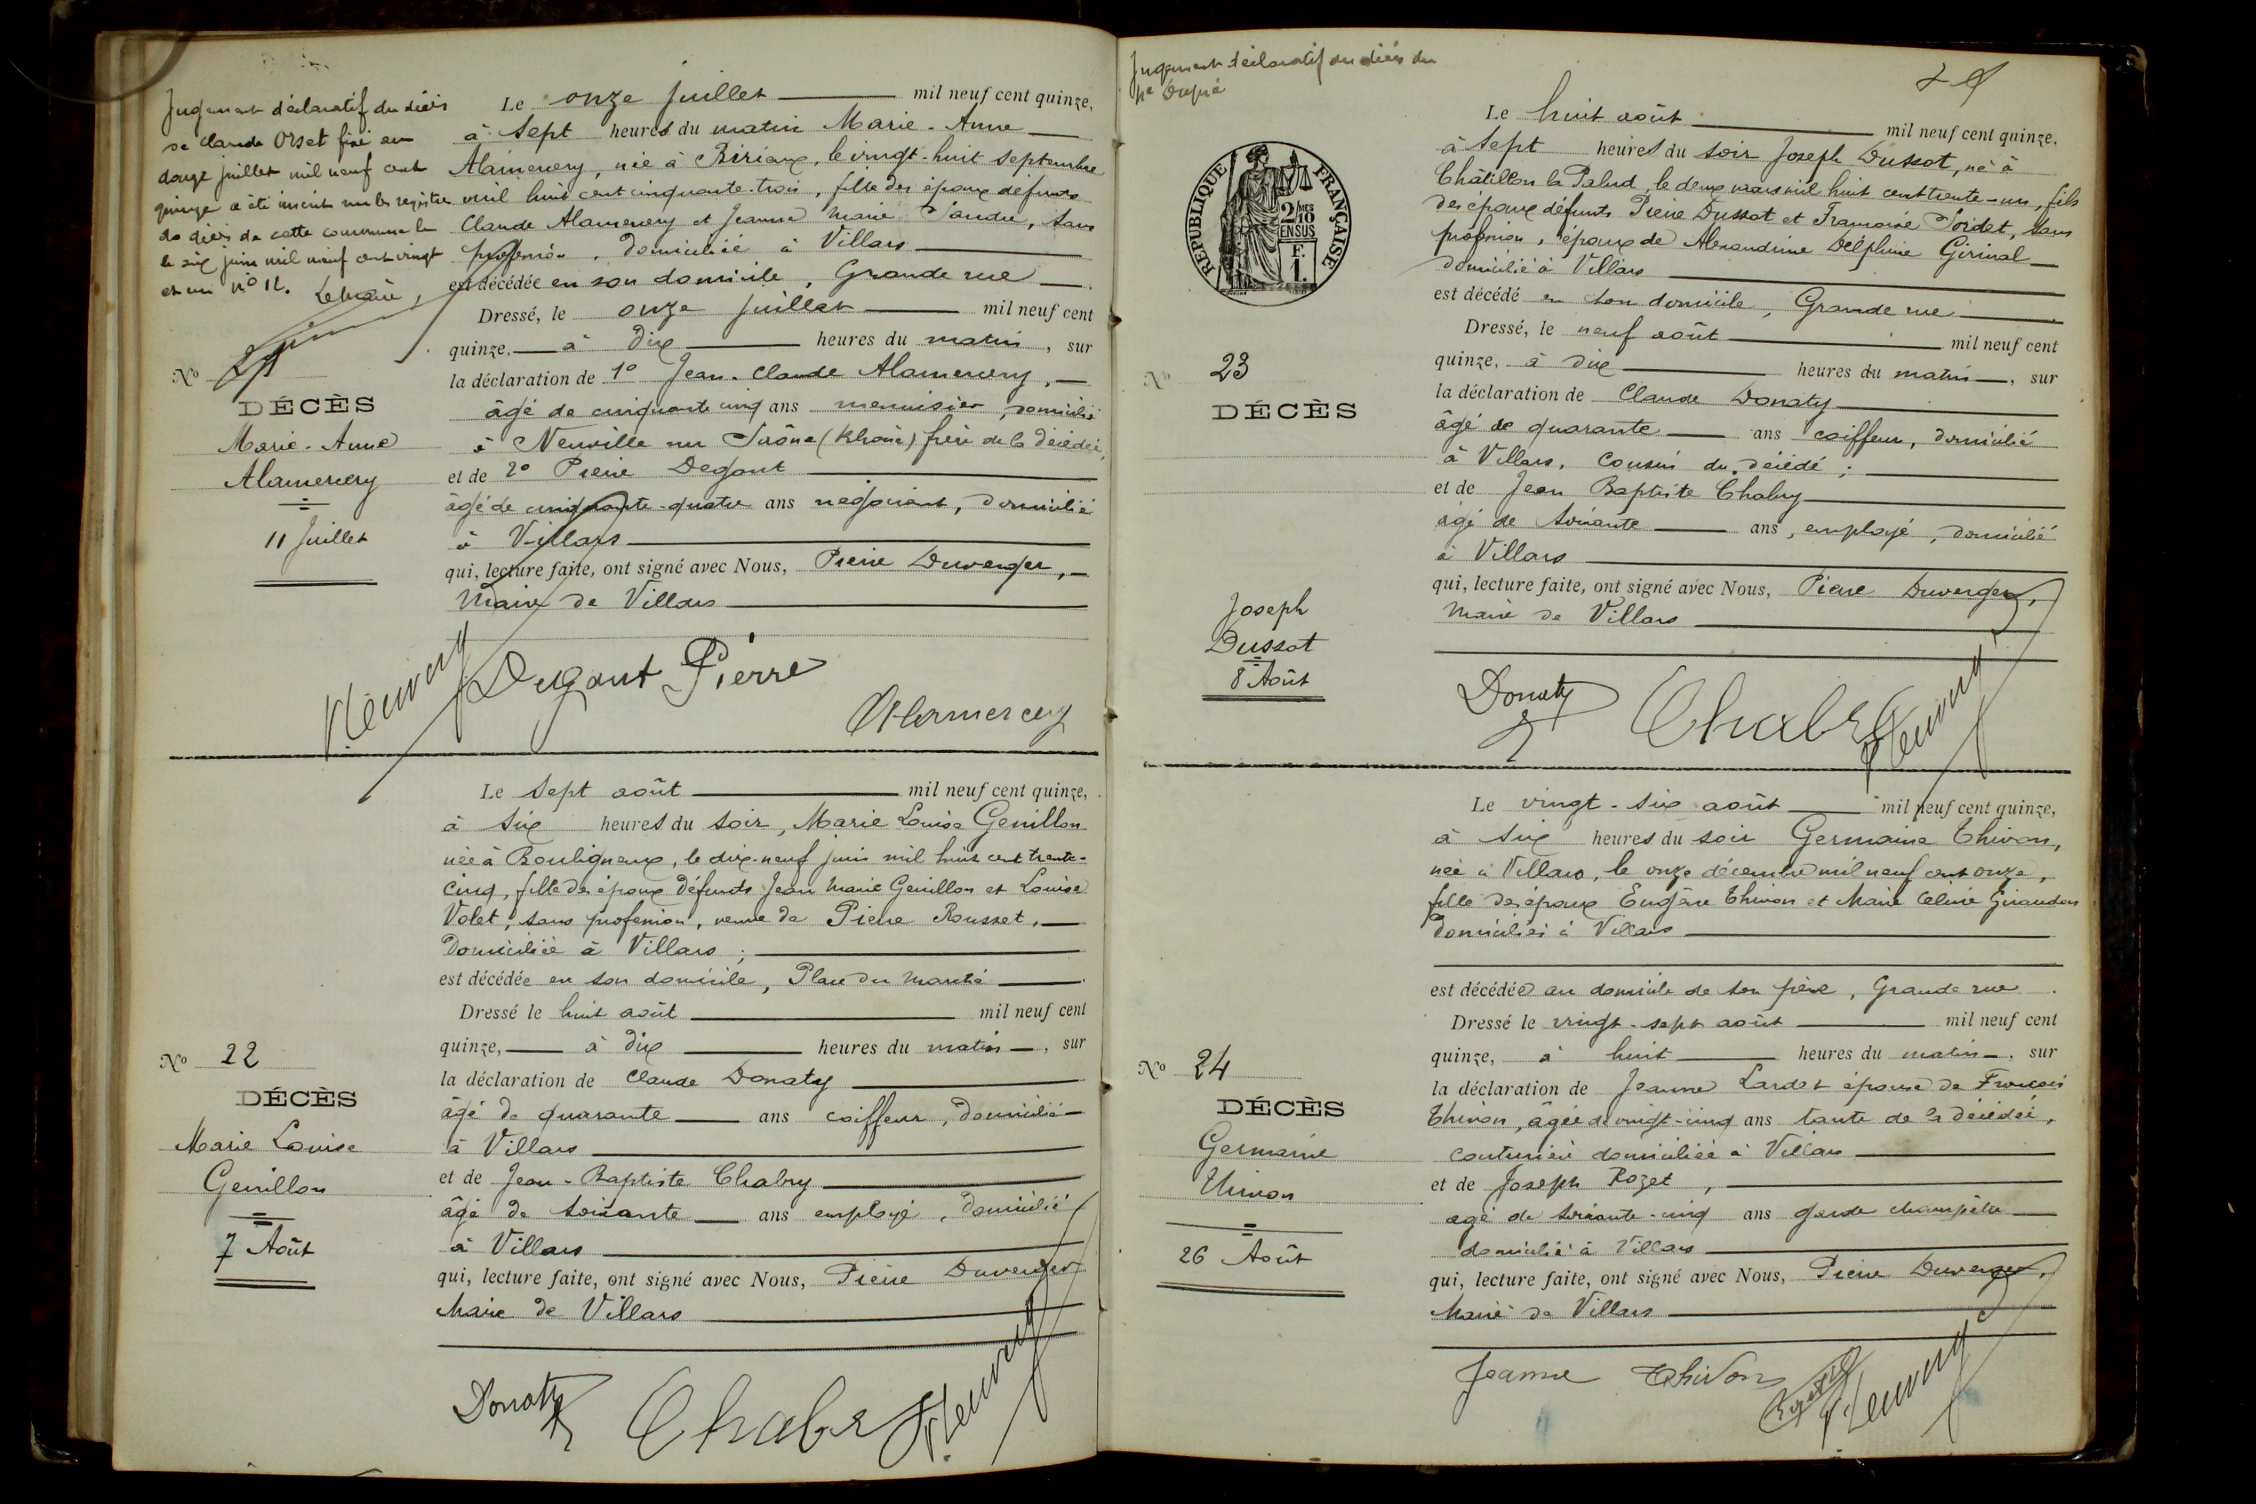 Jugement déclaratif du décès
de Claude Orset fixé au
douze juillet mil neuf cent
quinze a été inscrit sur les registres
de décès de cette commune le
le six juin mil neuf cent vingt
et un n° 12. Le Maire,
Le onze juillet mil neuf cent quinze,
à sept heures du matin Marie-Anne
Alamercery, née à Birieux, le vingt-huit septembre
mil huit cent cinquante-trois, fille des époux défunts
Claude Alamercery et Jeanne Marie, sans
profession, domiciliée à Villars
est décédée en son domicile, Grande rue
Dressé, le onze juillet mil neuf cent
quinze, à dix heures du matin, sur
la déclaration de 1° Jean-Claude Alamercery,
âgé de cinquante cinq ans menuisier, domicilié
à Neuville sur Saône (Rhône) frère de la décédée,
et de 2° Pierre Degout
âgé de cinquante-quatre ans négociant, domicilié
à Villars
qui, lecture faite, ont signé avec Nous, Pierre Duverger,
Maire de Villars
N° 21
DÉCÈS
Marie-Anne
Alamercery
11 Juillet
Dugout Pierre
Alamercery
Le sept août mil neuf cent quinze,
à six heures du soir, Marie Louise Genillon
née à Bouligneux, le dix-neuf juin mil huit cent trente-
cinq, fille des époux défunts Jean Marie Genillon et Louise
Volet, sans profession, veuve de Pierre Rousset,
domiciliée à Villars ;
est décédée en son domicile, Place du Marché
Dressé le huit août mil neuf cent
quinze, à dix heures du matin, sur
la déclaration de Claude Donaty
âgé de quarante ans coiffeur, domicilié
à Villars
et de Jean-Baptiste Chabry
âgé de soixante ans employé, domicilié
à Villars
qui, lecture faite, ont signé avec Nous, Pierre Duverger
Maire de Villars
N° 22
DÉCÈS
Marie Louise
Genillon
7 Août
Donaty
Chabry
Jugement déclaratif du décès du
RÉPUBLIQUE FRANÇAISE
2/10MES
EN SUS
F.
1.
Le huit août mil neuf cent quinze,
à sept heures du soir Joseph Dussot, né à
Châtillon la Palud, le deux mars mil huit cent trente-un, fils
des époux défunts Pierre Dussot et Françoise, sans
profession, époux de Alexandrine Delphine Girinal
domicilié à Villars
est décédé en son domicile, Grande rue
Dressé, le neuf août mil neuf cent
quinze, à dix heures du matin, sur
la déclaration de Claude Donaty
âgé de quarante ans coiffeur, domicilié
à Villars, cousin du décédé ;
et de Jean Baptiste Chabry
âgé de soixante ans, employé, domicilié
à Villars
qui, lecture faite, ont signé avec Nous, Pierre Duverger,
Maire de Villars
N° 23
DÉCÈS
Joseph
Dussot
8 Août
Donaty
Chabry
Le vingt-six août mil neuf cent quinze,
à six heures du soir Germaine Thivon,
née à Villars, le onze décembre mil neuf cent onze,
fille des époux Eugène Thivon et Marie Céline Giraudon
domiciliés à Villars
est décédée au domicile de son père, Grande rue
Dressé le vingt-sept août mil neuf cent
quinze, à huit heures du matin, sur
la déclaration de Jeanne Lardet épouse de François
Thivon, âgée de vingt-cinq ans tante de la décédée,
couturière domiciliée à Villars
et de Joseph Rozet,
âgé de soixante-cinq ans garde champêtre
domicilié à Villars
qui, lecture faite, ont signé avec Nous, Pierre Duverger,
Maire de Villars
N° 24
DÉCÈS
Germaine
Thivon
26 Août
Jeanne Thivon